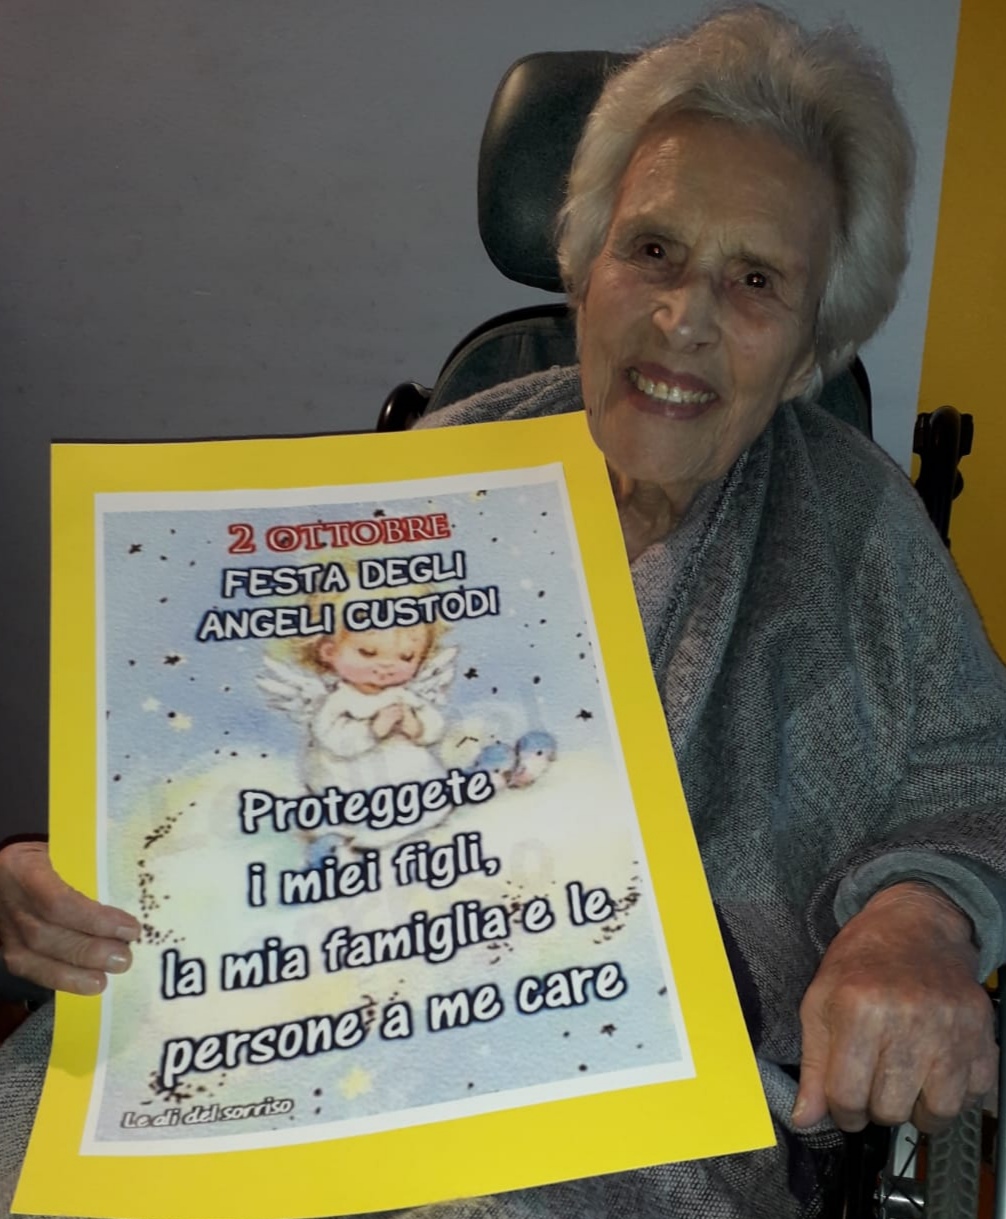 2 OTTOBRE
FESTA DEGLI
ANGELI CUSTODI
Proteggete
i miei figli,
la mia famiglia e le
persone a me care
Le ali del sorriso